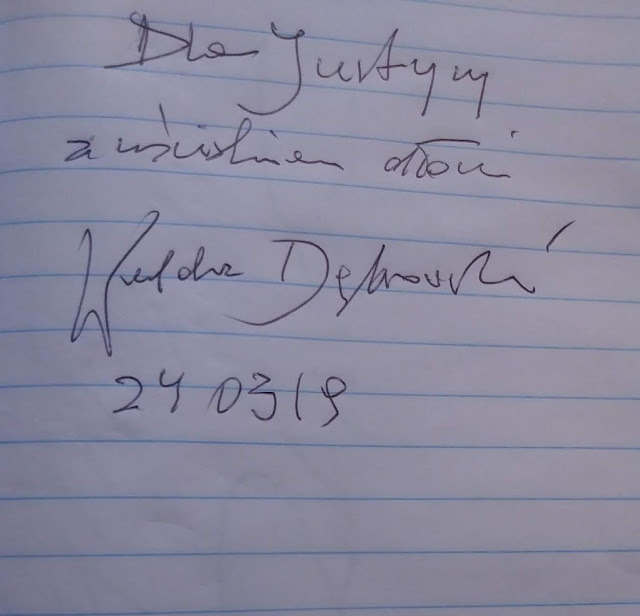 Dla Justyny
z uściskiem dłoni
Waldemar Dąbrowski
24 03 19